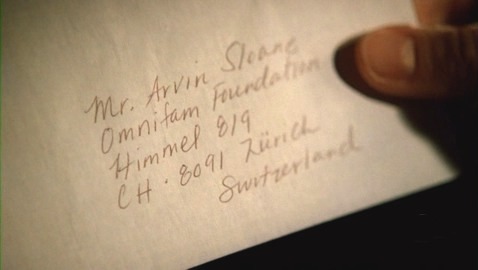 Mr. Arvin Sloane
Omnifam Foundation
Himmel 819
CH · 8091 Zürich
Switzerland